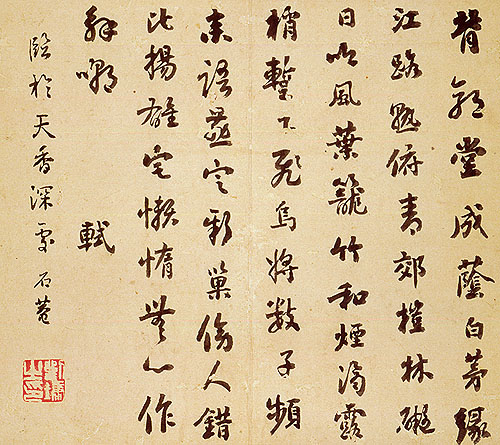 背郭堂成蔭白茅緣
江路熟俯青郊榿林礙
日吟風葉籠竹和煙滴露
梢蹔下飛烏將數子頻
來語燕定新巢傍人錯
比揚雄宅懶惰無心作
解嘲 軾
臨於天香深處 石菴
劉墉之印